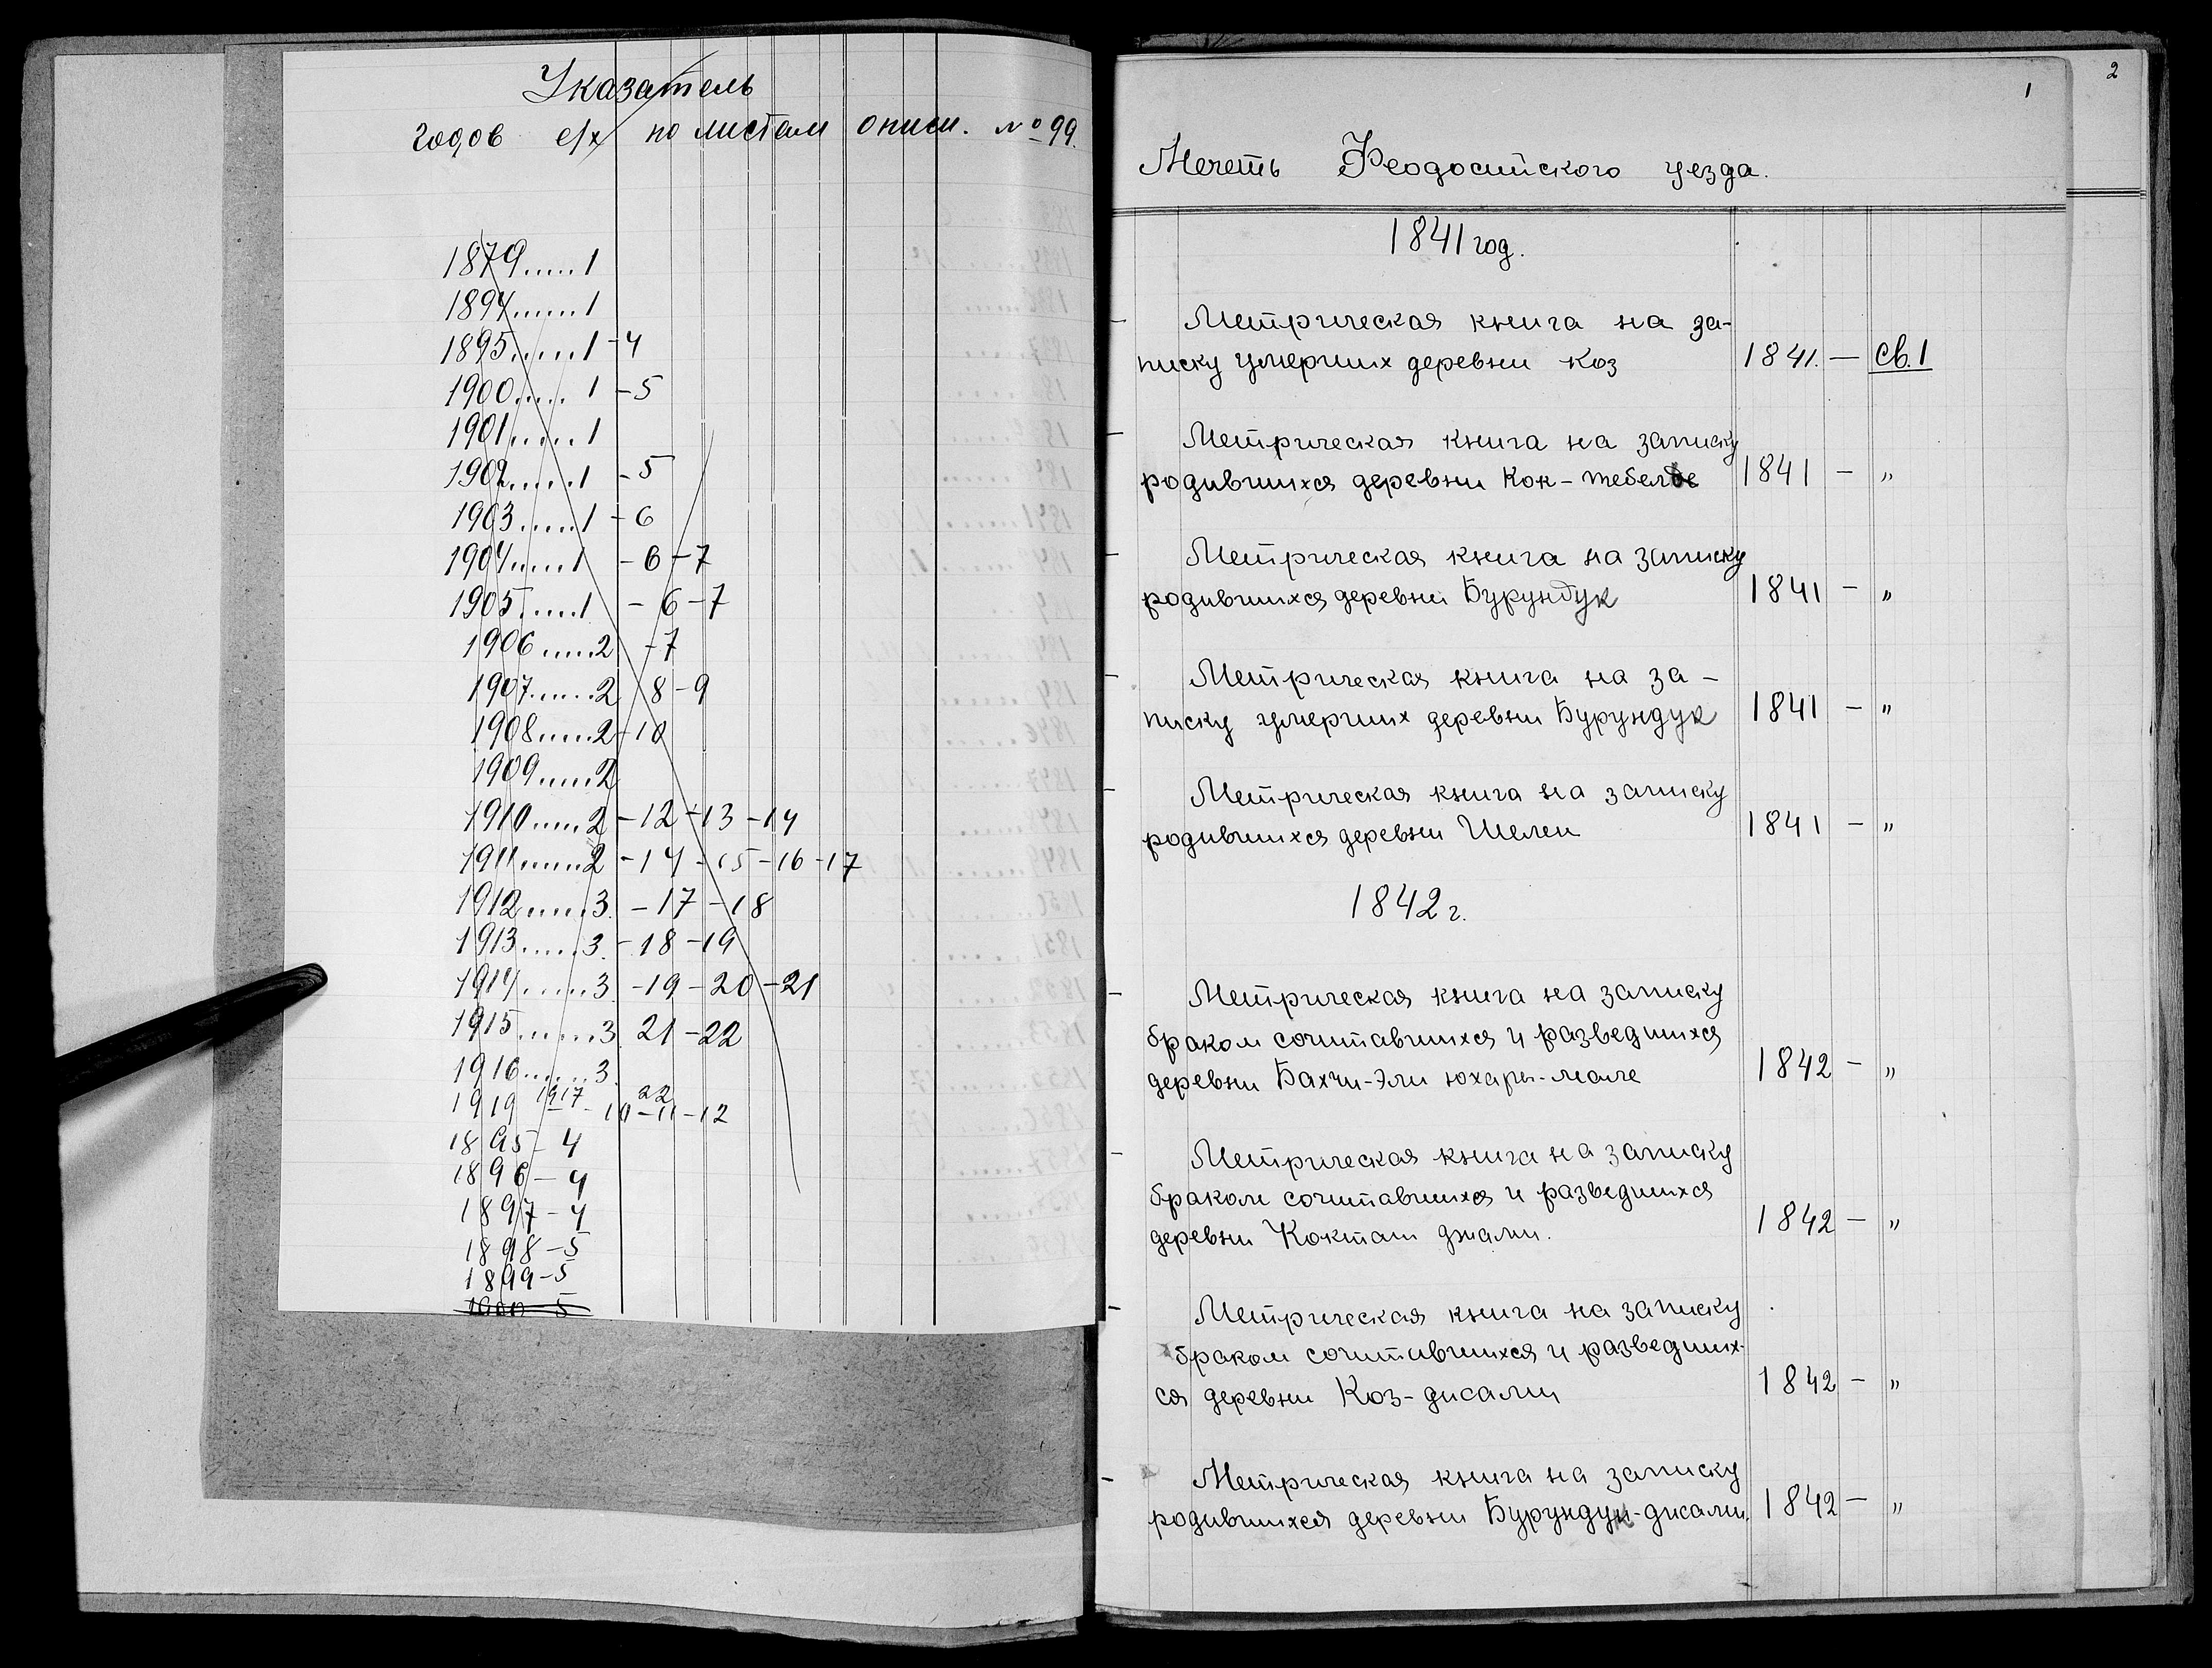 Указатель
годов е/х по листам описи. № 99.
1879.....1
1894......1
1895.....1 -4
1900..... 1 -5
1901......1
1902......1 -5
1903.....1 -6
1904.....1 -6 -7
1905.....1 -6 -7
1906.....2 -7
1907......2 8 -9
1908.....2 -10
1909.....2
1910.....2 -12 -13 -14
1911......2 -14 -15 -16 -17
1912.....3. -17 -18
1913.....3. -18 -19
1914......3. -19 -20 -21
1915......3. 21 -22
1916......3.
1917 22
1919 - 10 -11 -12
1895 - 4
1896 - 4
1897 - 4
1898 - 5
1899 - 5
1900 - 5
1
2
Мечеть Феодосийского уезда.
1841 год.
Метрическая книга на за-
писку умерших деревни Коз 1841. — св. 1
Метрическая книга на записку
родившихся деревни Кок-тебел 1841 — "
Метрическая книга на записку
родившихся деревни Бурундук 1841 — "
Метрическая книга на за-
писку умерших деревни Бурундук 1841 — "
Метрическая книга на записку
родившихся деревни Шелен 1841 — "
1842 г.
Метрическая книга на записку
браком сочитавшихся и разведшихся
деревни Бахчи-эли юхары-мале 1842 — "
Метрическая книга на записку
браком сочитавшихся и разведшихся
деревни Кокташ джами. 1842 — "
Метрическая книга на записку
браком сочитавшихся и разведших-
ся деревни Коз-джами 1842 — "
Метрическая книга на записку
родившихся деревни Бурундук-джами. 1842 — "